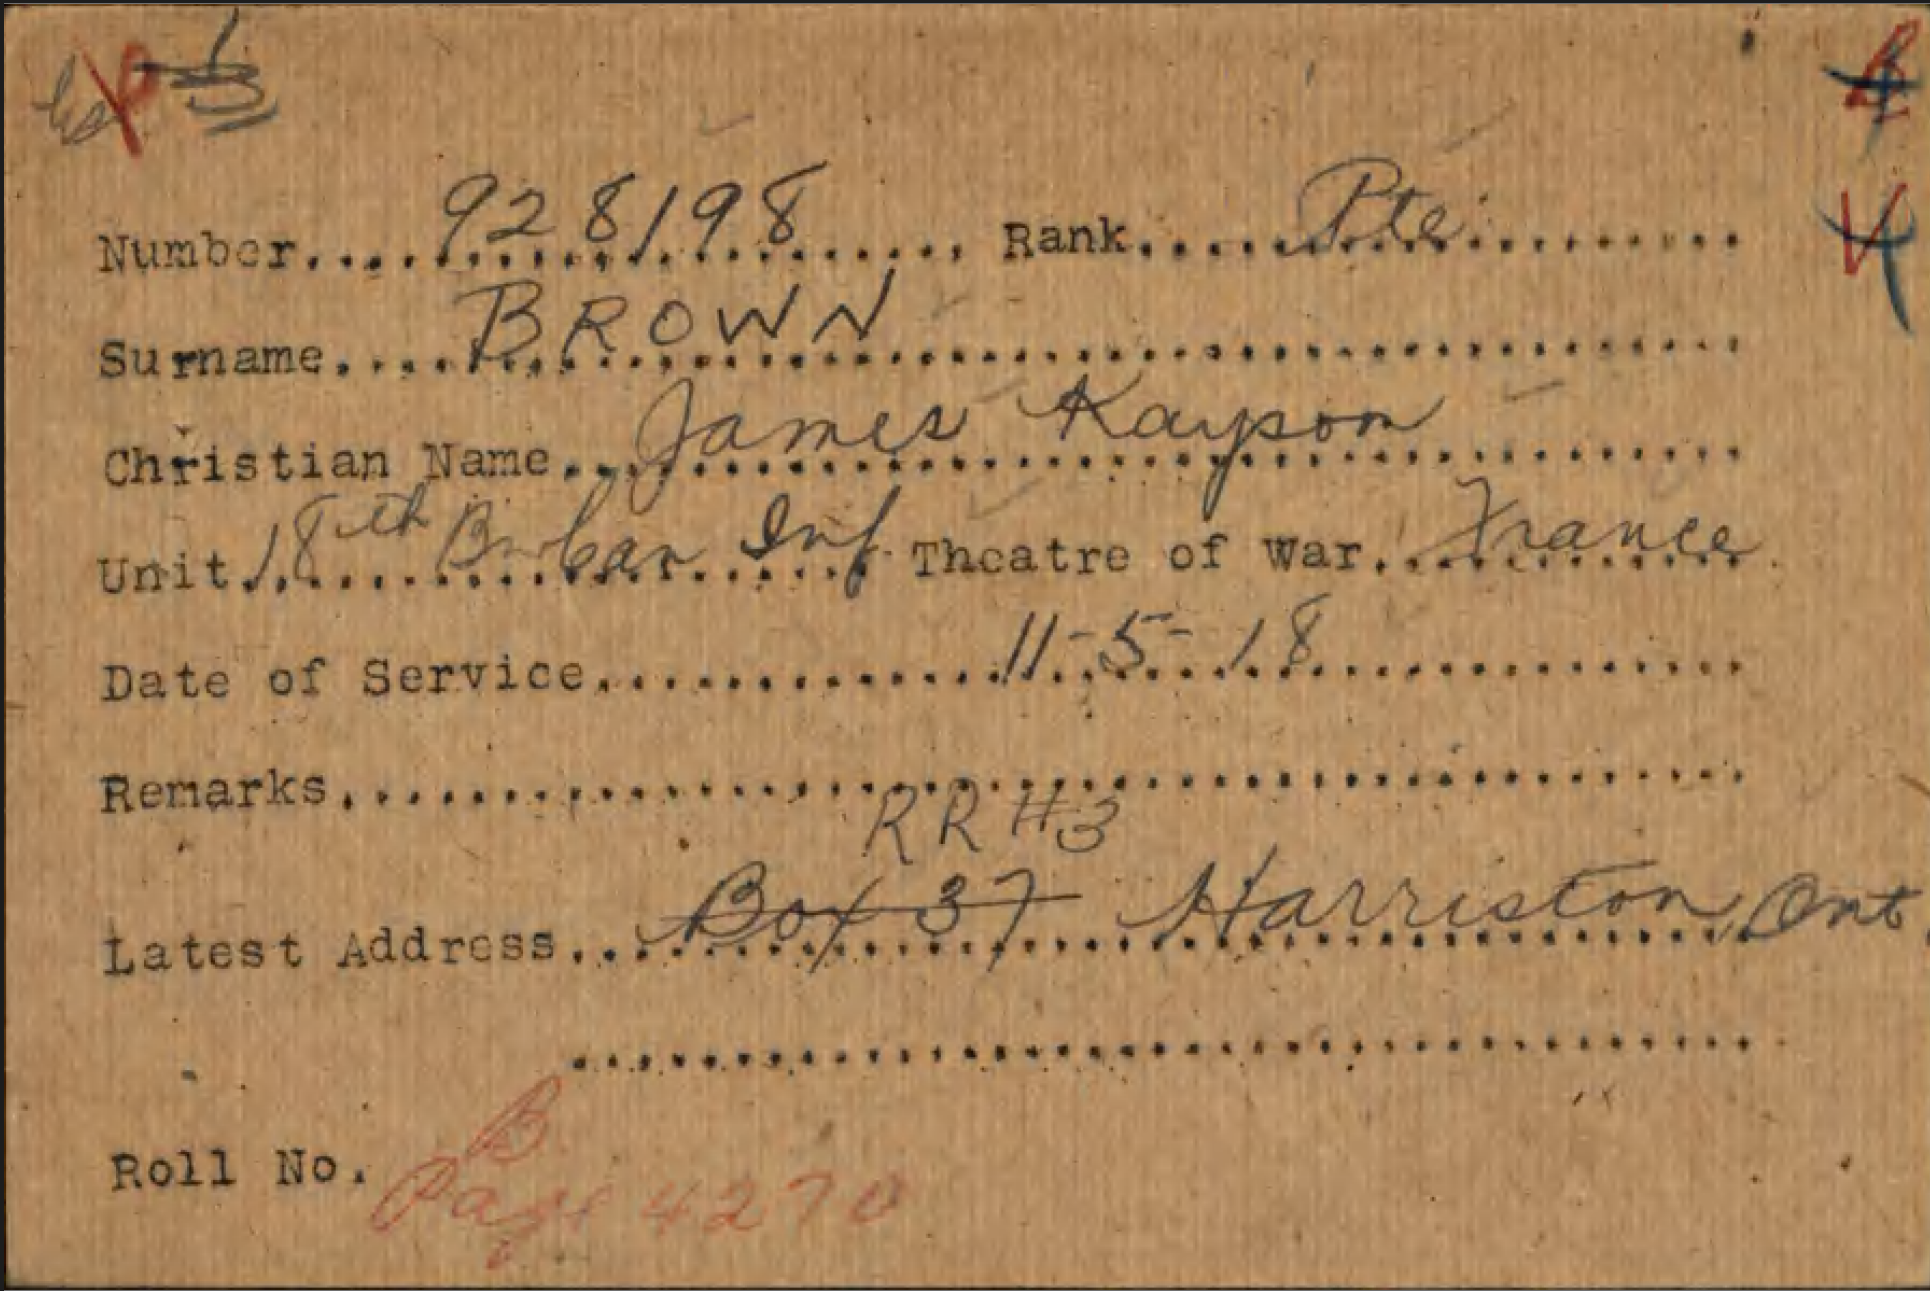 B
Number 928198 Rank Pte
Surname BROWN
Christian Name James Kayson
Unit 18th Bn Can Inf Theatre of War France
Date of Service 11-5-18
Remarks
RR #3
Latest Address Box 37 Harriston, Ont.
B.
Roll No. Page 4270